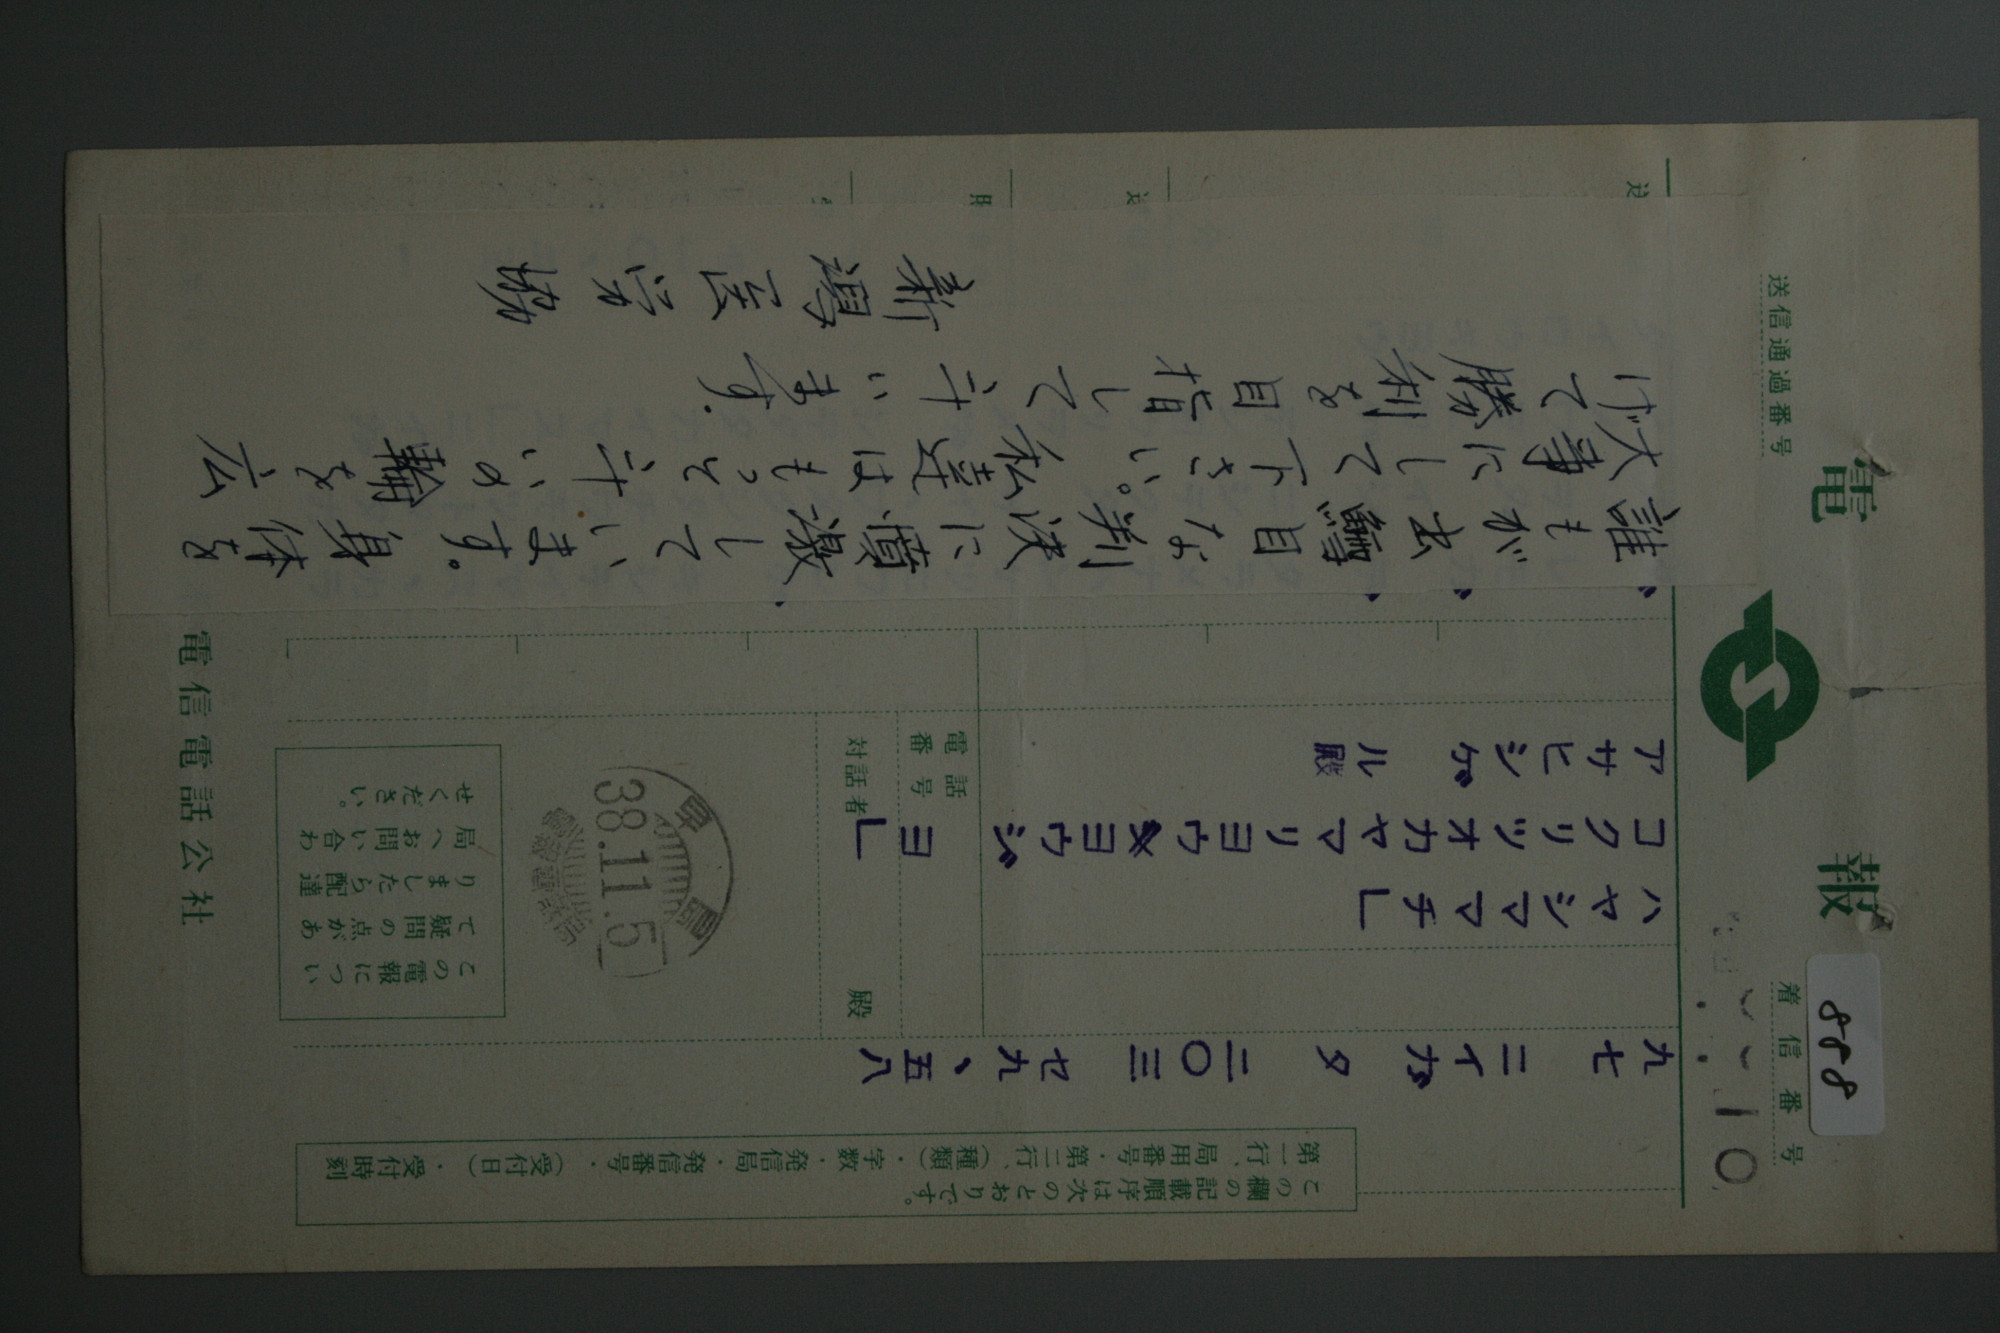 電報
送信通過番号
着信番号
888
10
この欄の記載順序は次のとおりです。
第一行、局用番号・第二行、(種類)・字数・発信局・発信番号・(受付日)・受付時刻
九七 ニイガタ 二〇三 セ九、五八
ハヤシマチ」
コクリツオカヤマリヨウヨウジヨ」
アサヒシゲル殿
電話番号
対話者 殿
早島
38.11.5
この電報につい
て疑問の点があ
りましたら配達
局へお問い合わ
せください。
電信電話公社
誰もが出鱈目な判決に憤激しています。身体を
大事にして下さい。私達はもっと斗いの輪を広
げて勝利を目指して斗います。
新潟医労協